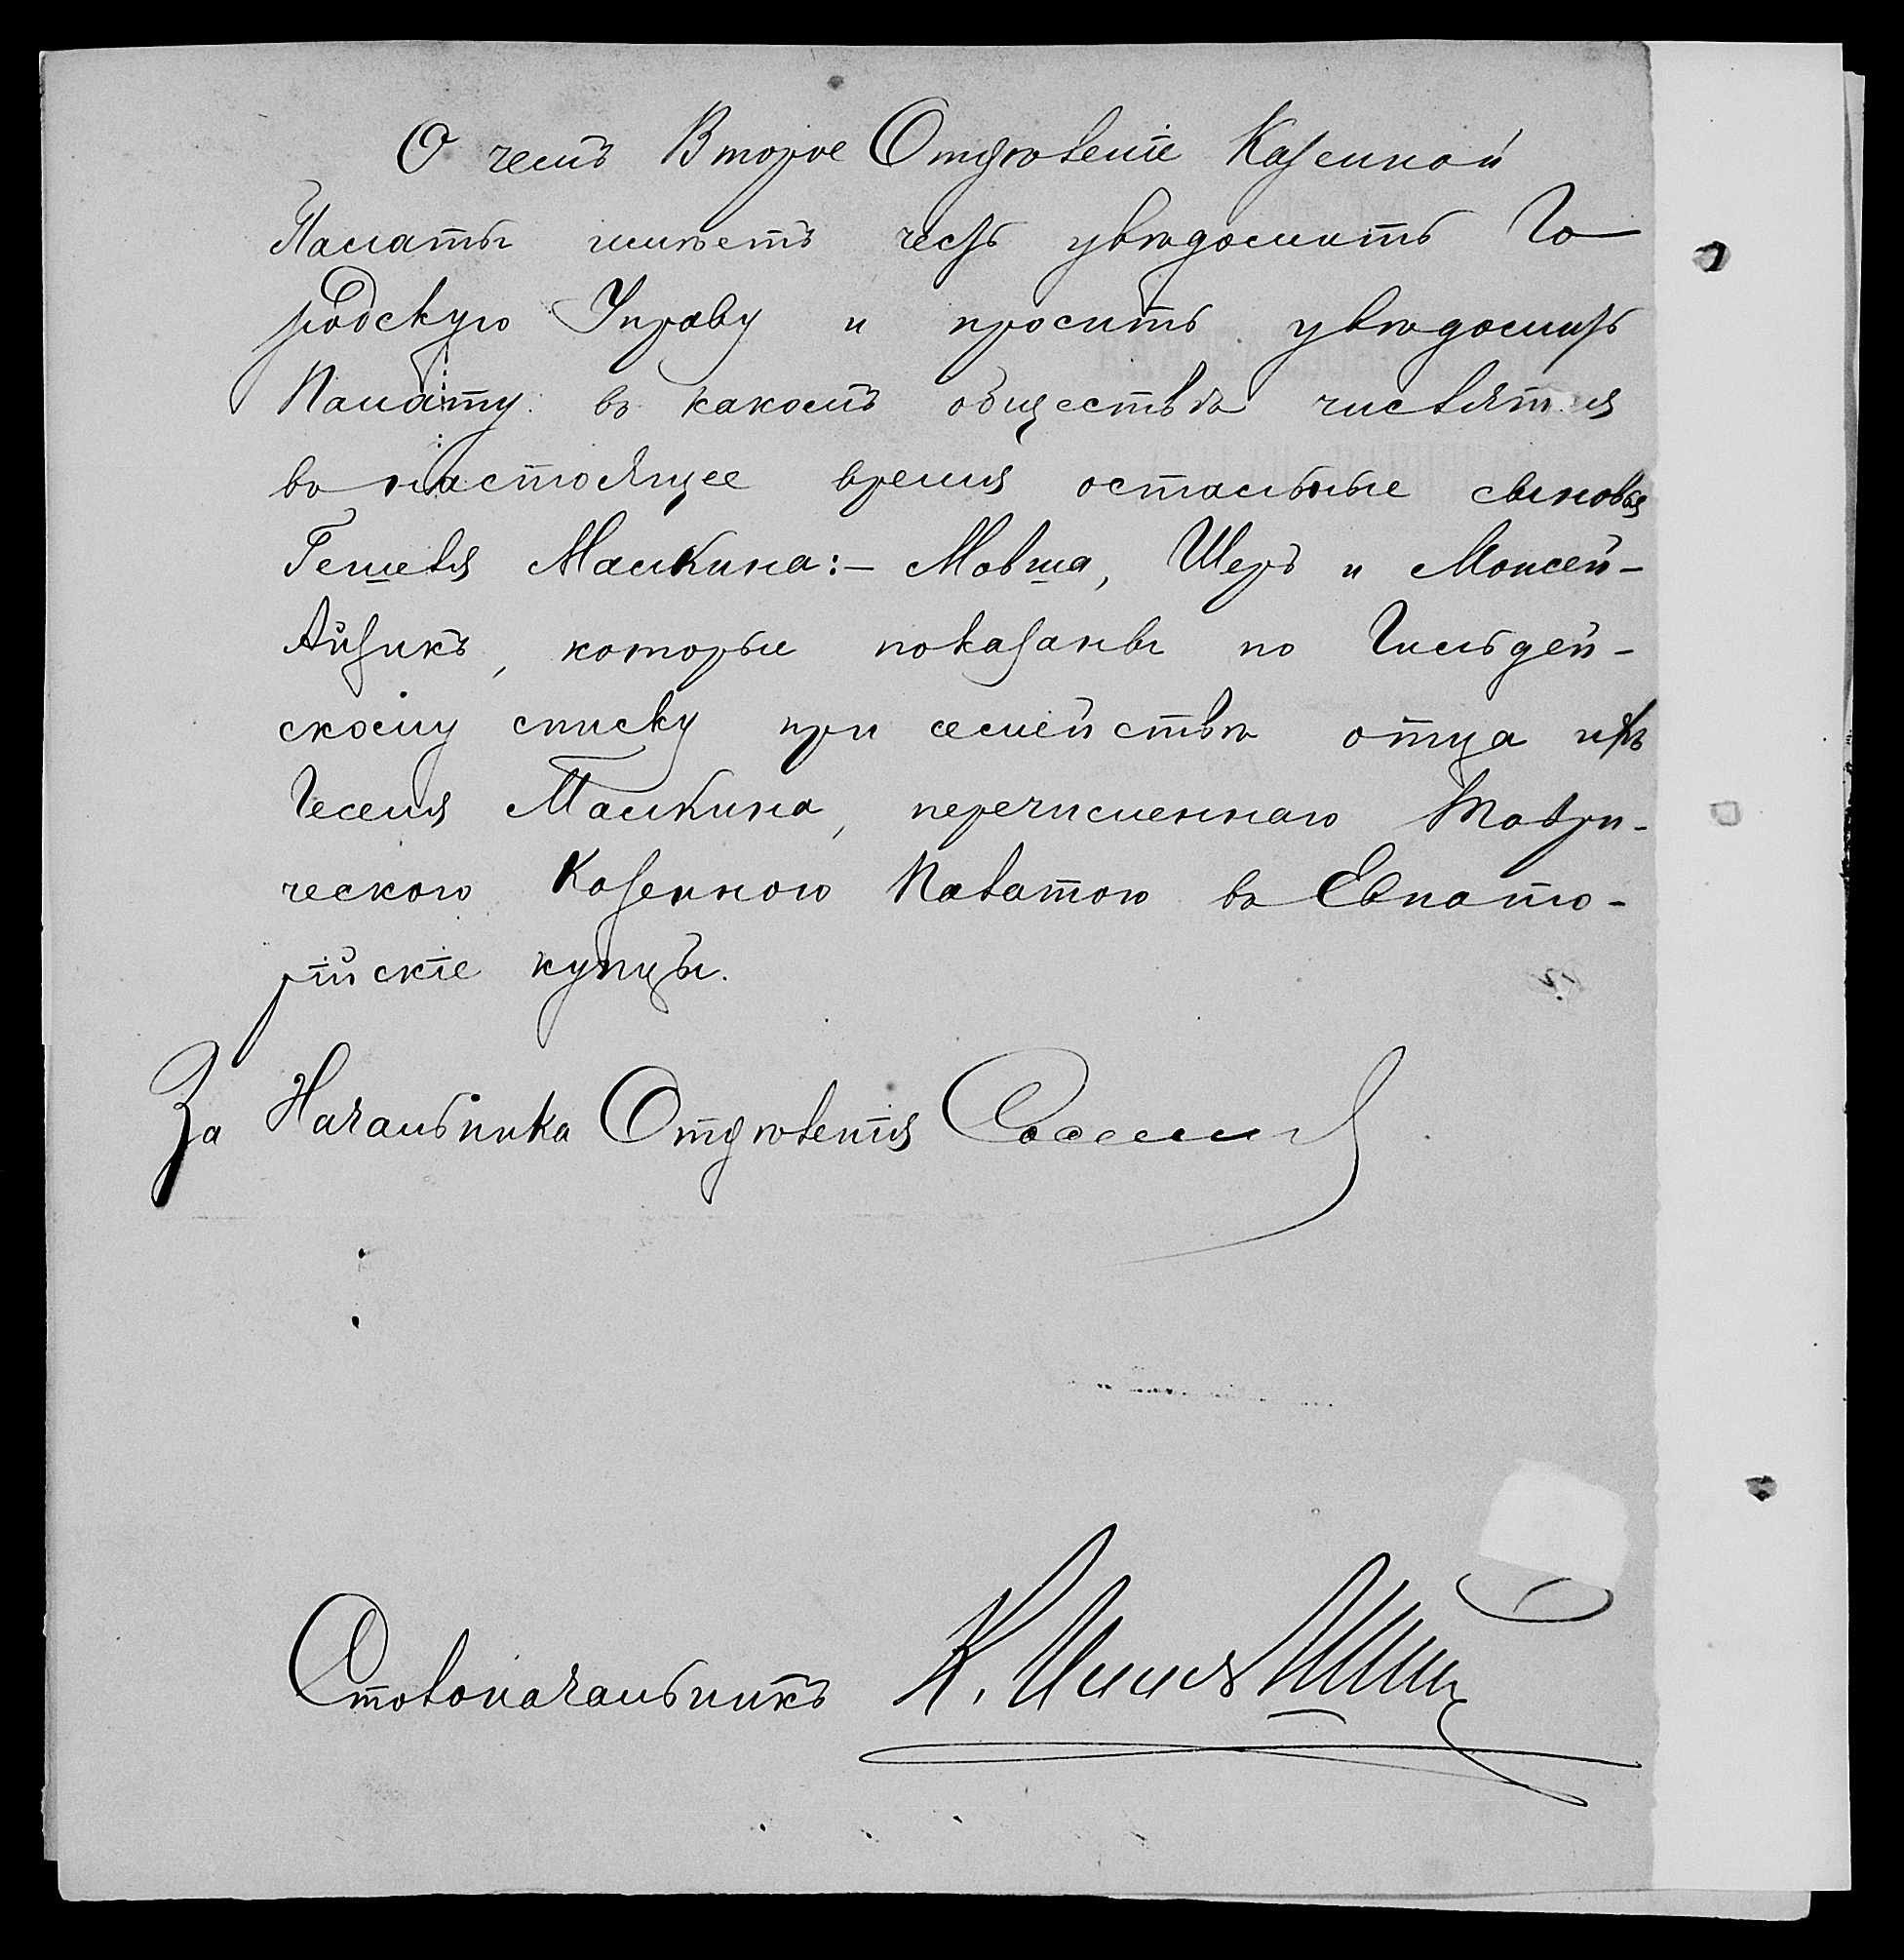 О чемъ Второе Отдѣленіе Казенной
Палаты имѣетъ честь увѣдомить Го-
родскую Управу и проситъ увѣдомить
Палату въ какомъ обществѣ числятся
въ настоящее время остальные сыновья
Гешеля Малкина:– Мовша, Шеръ и Моисей-
Айзикъ, которые показаны по Гильдей-
скому списку при семействѣ отца ихъ
Гесселя Малкина, перечисленнаго Таври-
ческою Казенною Палатою въ Евпато-
рійскіе купцы.
За Начальника Отдѣленія
Столоначальникъ К.